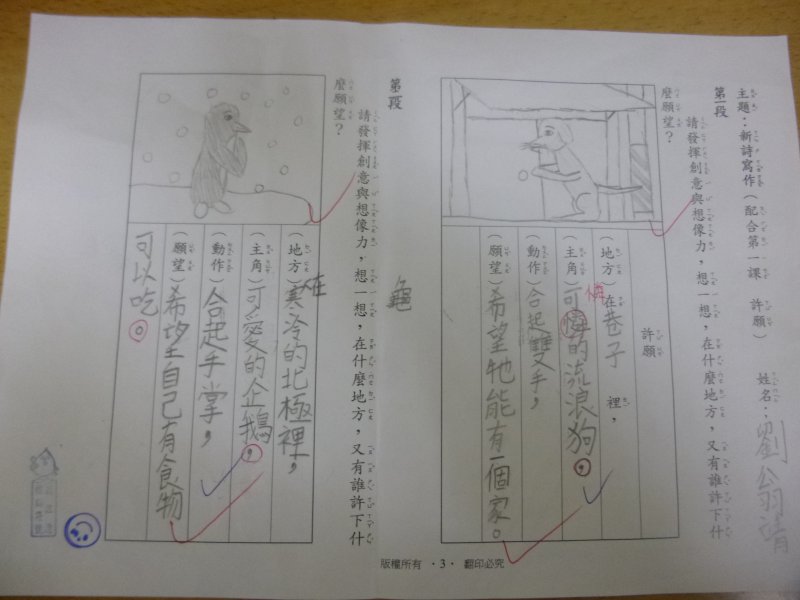 主題：新詩寫作（配合第一課　許願）　姓名：劉翁靖
第一段
請發揮創意與想像力，想一想，在什麼地方，又有誰許下什
麼願望？
許願
（地方）在巷子　裡，
（主角）可憐的流浪狗，
憐
（動作）合起雙手，
（願望）希望牠能有一個家。
龜
第二段
請發揮創意與想像力，想一想，在什麼地方，又有誰許下什
麼願望？
（地方）在寒冷的北極裡，
（主角）可愛的企鵝，
（動作）合起手掌，
（願望）希望自己有食物
可以吃。
版權所有　・3・　翻印必究